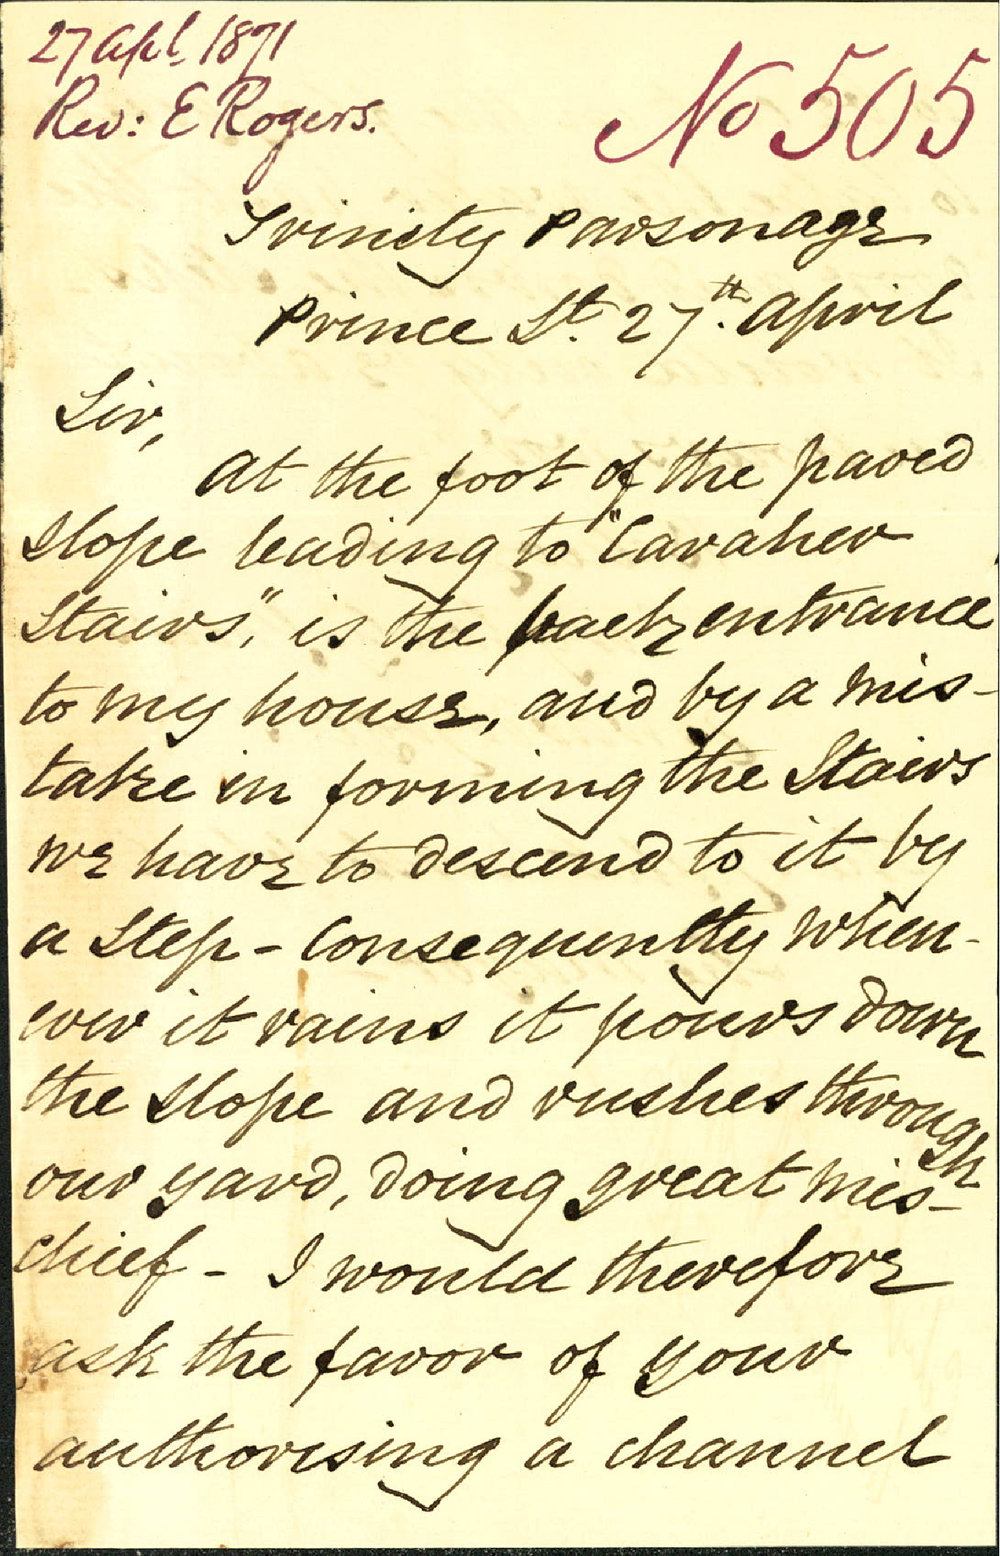 27 Apl. 1871
Rev: E Rogers.
No 505
Trinity Parsonage
Prince St. 27th. April
Sir,
At the foot of the paved
slope leading to "Caraher
Stairs", is the back entrance
to my house, and by a mis-
take in forming the Stairs
we have to descend to it by
a Step - Consequently when-
ever it rains it pours down
the slope and rushes through
our yard, doing great mis-
chief - I would therefore
ask the favor of your
authorising a channel